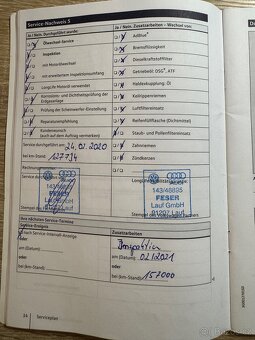 Service-Nachweis 5
Ja / Nein. Durchgeführt wurde:
Ölwechsel-Service
Inspektion
mit Motorölwechsel
mit erweitertem Inspektionsumfang
LongLife Motoröl verwendet
Korrosions- und Dichtheitsprüfung der Erdgasanlage
Prüfung der Scheinwerfer-Einstellung
Reparaturempfehlung
Kundenwunsch
(auch auf dem Auftrag vermerken)
Ja / Nein. Zusatzarbeiten – Wechsel von:
AdBlue®
Bremsflüssigkeit
Dieselkraftstofffilter
Getriebeöl: DSG®, ATF
Haldexkupplung: Öl
Keilrippenriemen
Luftfiltereinsatz
Reifenfüllflasche (Dichtmittel)
Staub- und Pollenfiltereinsatz
Zahnriemen
Zündkerzen
Service durchgeführt am: 24.02.2020
bei km-Stand: 127794
143/48895
FESER
Lauf GmbH
91207 Lauf
143/48895
FESER
Lauf GmbH
91207 Lauf
Ihre nächsten Service-Termine
Service-Ereignis
nach Service-Intervall-Anzeige
oder
am (Datum):
oder
bei (km-Stand):
Zusatzarbeiten
Inspektion
am (Datum): 02/2021
oder
bei (km-Stand): 157000
24 Serviceplan